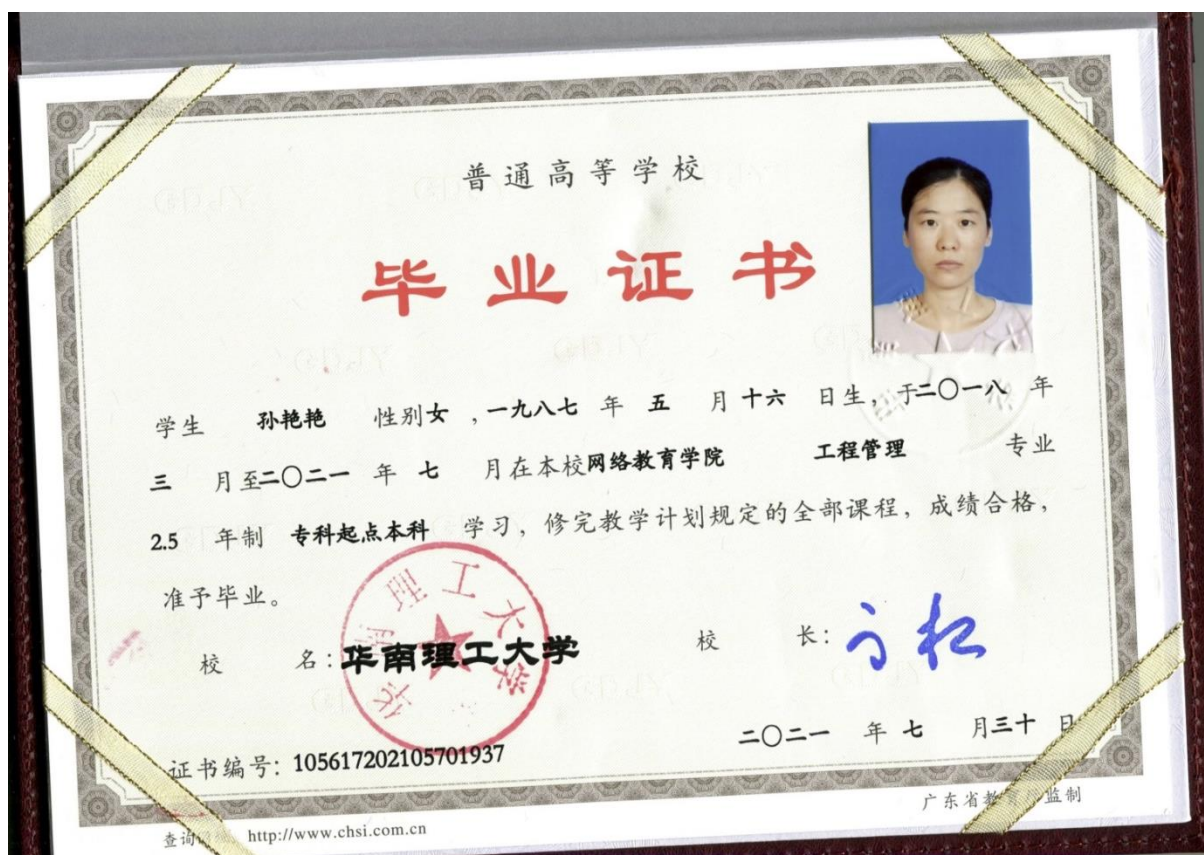 普通高等学校
毕业证书
学生 孙艳艳 性别女，一九八七 年 五 月十六 日生，于二〇一八 年
三 月至二〇二一 年 七 月在本校网络教育学院 工程管理 专业
2.5 年制 专科起点本科 学习，修完教学计划规定的全部课程，成绩合格，
准予毕业。
校 名：华南理工大学 校 长：
华南理工大学
二〇二一 年 七 月三十 日
证书编号：105617202105701937
广东省教 监制
查询 http://www.chsi.com.cn